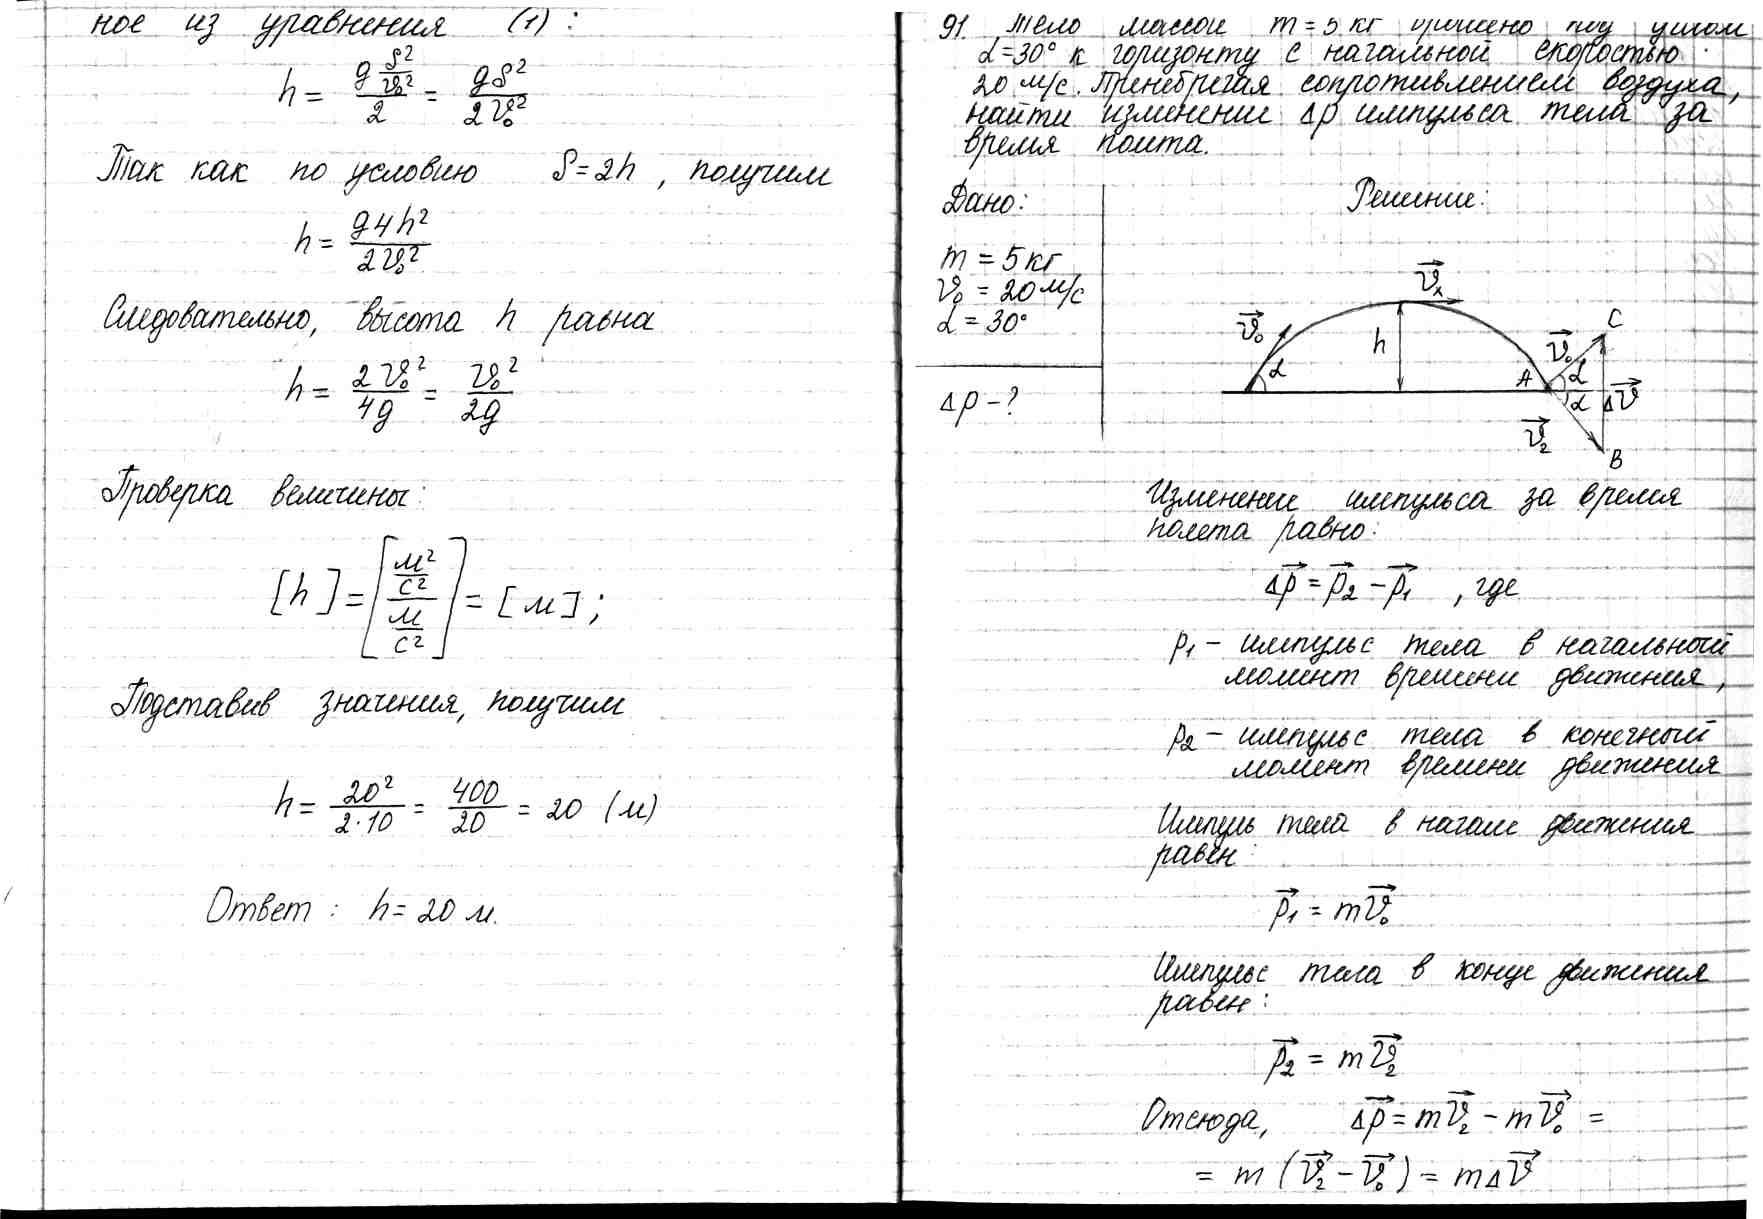 ное из уравнения (1):
h = (g S²/𝒱₀²)/2 = gS²/2𝒱₀²
Так как по условию S=2h, получим
h = g4h²/2𝒱₀²
Следовательно, высота h равна
h = 2𝒱₀²/4g = 𝒱₀²/2g
Проверка величины:
[h] = [(м²/с²)/(м/с²)] = [м];
Подставив значения, получим
h = 20²/2·10 = 400/20 = 20 (м)
Ответ: h = 20 м.
91. Тело массой m = 5 кг брошено под углом
α=30° к горизонту с начальной скоростью
20 м/с. Пренебрегая сопротивлением воздуха,
найти изменение Δp импульса тела за
время полета.
Дано:
m = 5 кг
𝒱₀ = 20 м/с
α = 30°
Δp - ?
Решение:
𝒱⃗ₓ
𝒱⃗₀
α
h
A
𝒱⃗₀
C
α
α
Δ𝒱⃗
𝒱⃗₂
B
Изменение импульса за время
полета равно:
Δp⃗ = p⃗₂ - p⃗₁, где
p₁ - импульс тела в начальный
момент времени движения,
p₂ - импульс тела в конечный
момент времени движения
Импуль тела в начале движения
равен:
p⃗₁ = m𝒱⃗₀
Импульс тела в конце движения
равен:
p⃗₂ = m𝒱⃗₂
Отсюда, Δp⃗ = m𝒱⃗₂ - m𝒱⃗₀ =
= m (𝒱⃗₂ - 𝒱⃗₀) = mΔ𝒱⃗